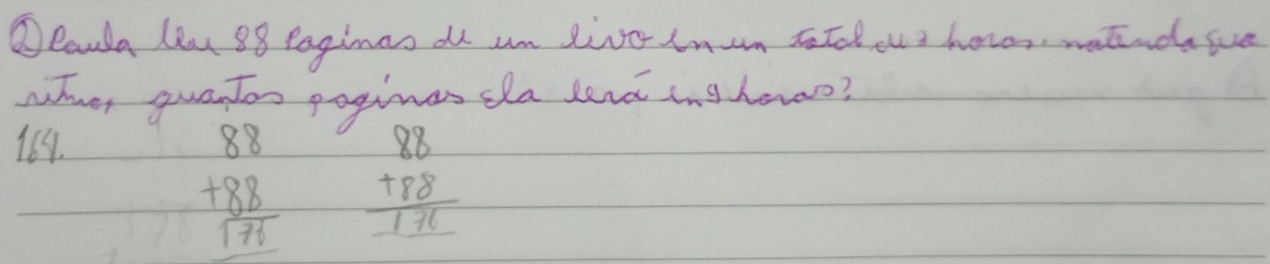 ② Paula leu 88 Paginas de un livo en un total de 3 horas. matenda sue
ritmo, quantos paginas ela lerá in 9 horas?
164. 88 88
+88 +88
176 176